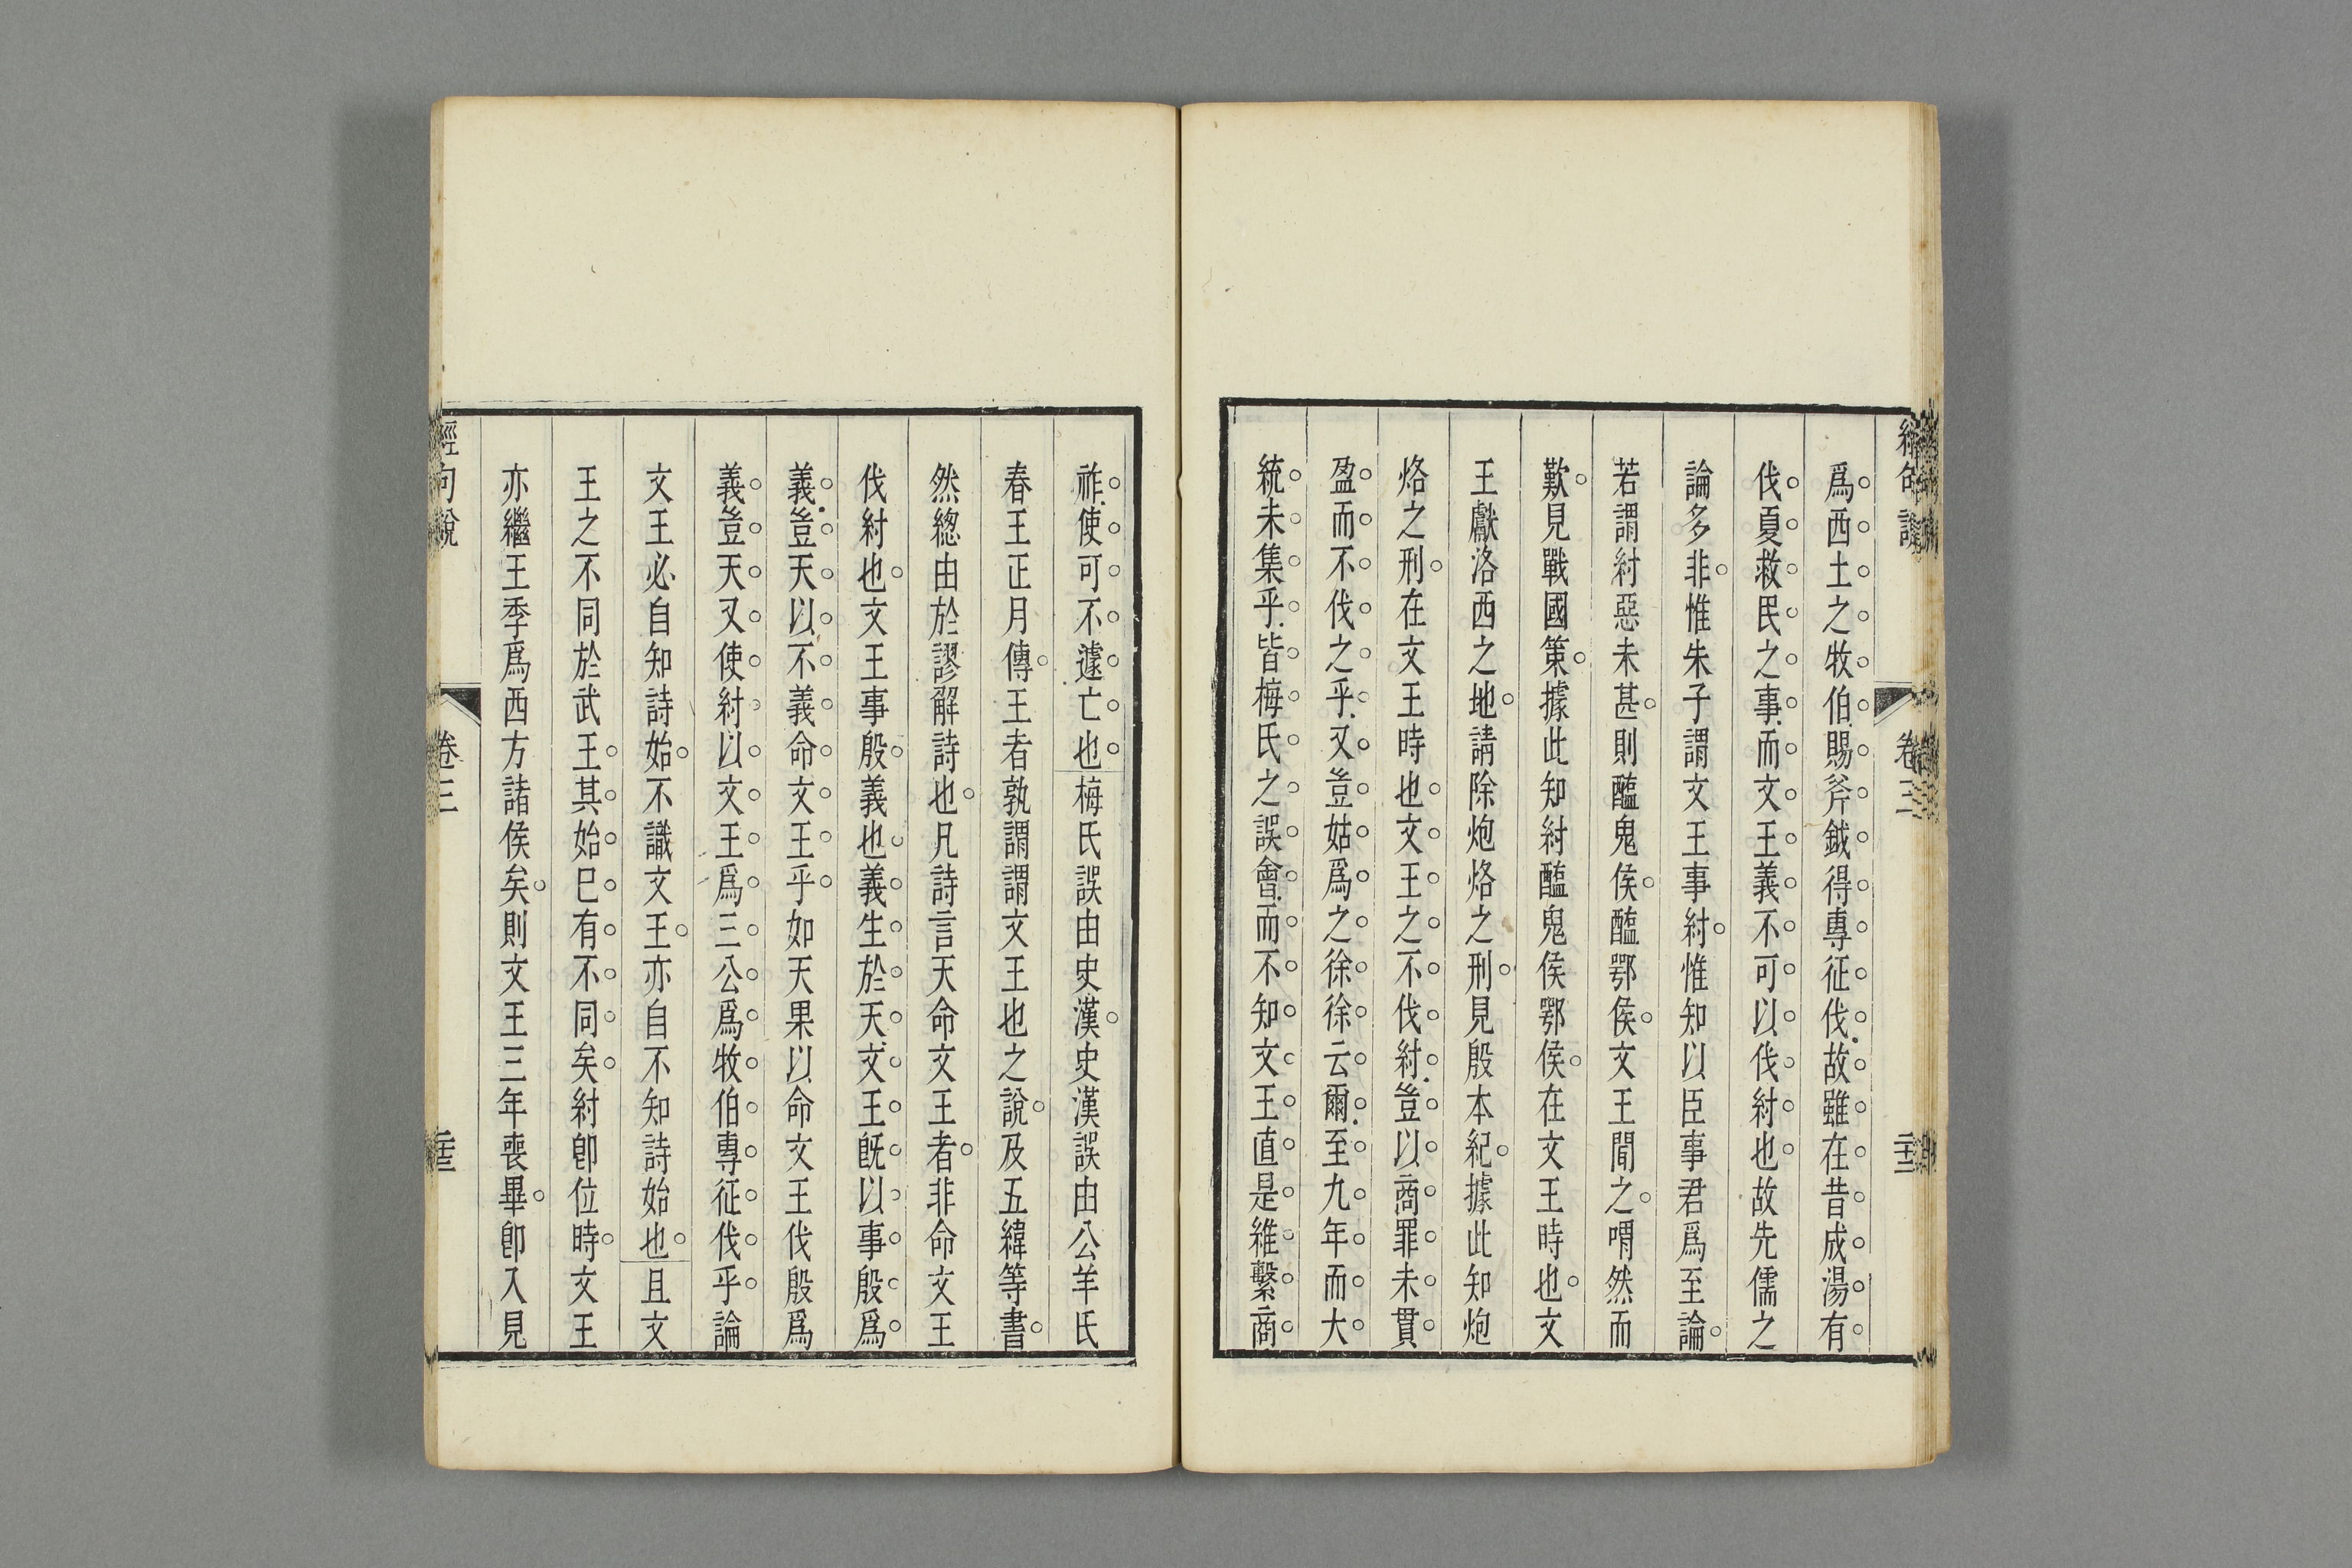 爲西土之牧伯賜斧鉞得專征伐故雖在昔成湯有
伐夏救民之事而文王義不可以伐紂也故先儒之
論多非惟朱子謂文王事紂惟知以臣事君爲至論
若謂紂惡未甚則醢鬼侯醢鄂侯文王聞之喟然而
歎見戰國策據此知紂醢鬼侯鄂侯在文王時也文
王獻洛西之地請除炮烙之刑見殷本紀據此知炮
烙之刑在文王時也文王之不伐紂豈以商罪未貫
盈而不伐之乎又豈姑爲之徐徐云爾至九年而大
統未集乎皆梅氏之誤會而不知文王直是維繫商
祚使可不遽亡也梅氏誤由史漢史漢誤由公羊氏
春王正月傳王者孰謂謂文王也之說及五緯等書
然總由於謬解詩也凡詩言天命文王者非命文王
伐紂也文王事殷義也義生於天文王旣以事殷爲
義豈天以不義命文王乎如天果以命文王伐殷爲
義豈天又使紂以文王爲三公爲牧伯專征伐乎論
文王必自知詩始不識文王亦自不知詩始也且文
王之不同於武王其始已有不同矣紂卽位時文王
亦繼王季爲西方諸侯矣則文王三年喪畢卽入見
經句說
卷三